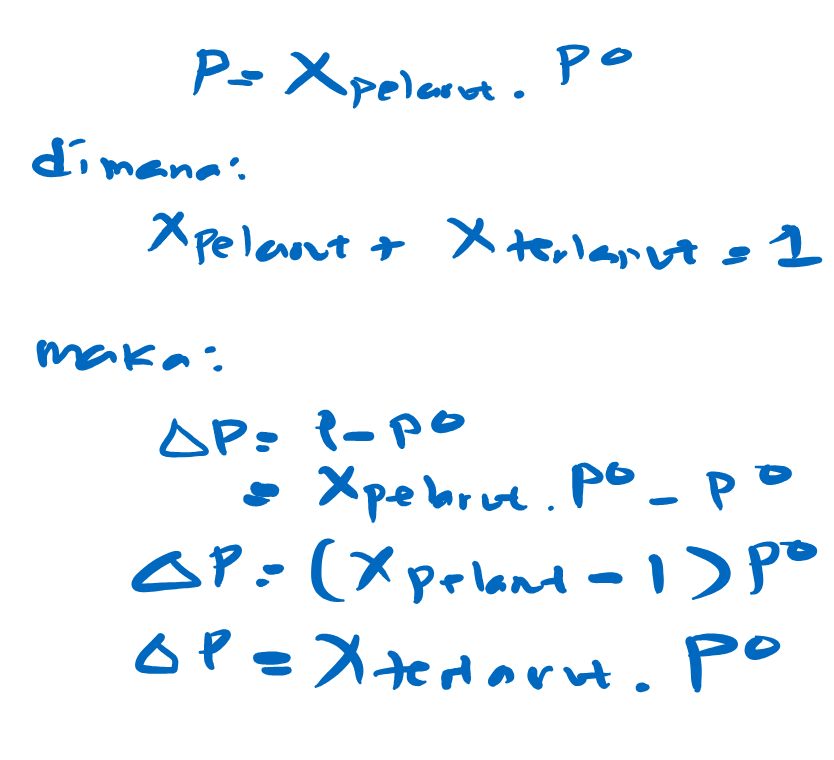 P = X pelarut . P°
dimana:
X pelarut + X terlarut = 1
maka:
ΔP = P - P°
= X pelarut . P° - P°
ΔP = (X pelarut - 1) P°
ΔP = X terlarut . P°